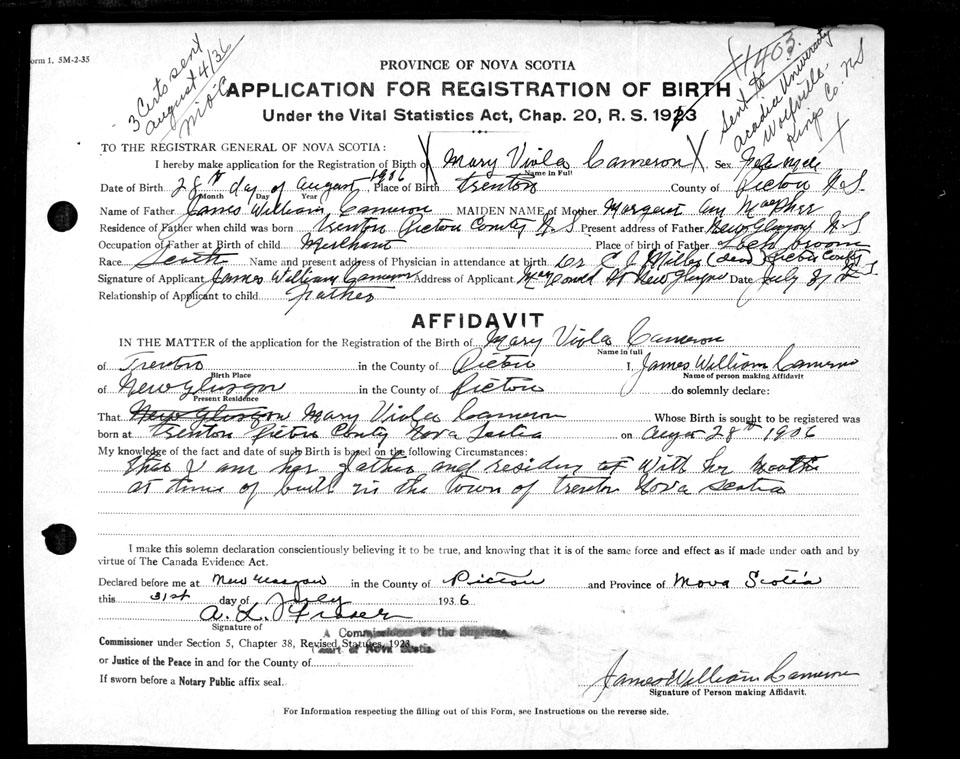 orm 1. 5M-2-35
3 Certs sent
August 4/36
11403
Sent to
Acadia University
Wolfville
Kings Co. N S
X
PROVINCE OF NOVA SCOTIA
APPLICATION FOR REGISTRATION OF BIRTH
Under the Vital Statistics Act, Chap. 20, R. S. 1923
TO THE REGISTRAR GENERAL OF NOVA SCOTIA:
I hereby make application for the Registration of Birth of X Mary Viola Cameron X Sex Female
Name in Full
Date of Birth 28th day of August 1906 Place of Birth Trenton County of Pictou N.S.
Month Day Year
Name of Father James William Cameron MAIDEN NAME of Mother Margaret Ann
Residence of Father when child was born Trenton Pictou County N.S. Present address of Father New Glasgow N.S
Occupation of Father at Birth of child Merchant Place of Birth of Father Loch broom
Race Scotch Name and present address of Physician in attendance at birth Dr C J Miller (dead) Pictou County N.S.
Signature of Applicant James William Cameron Address of Applicant St New Glasgow Date July 31st
Relationship of Applicant to child Father
AFFIDAVIT
IN THE MATTER of the application for the Registration of the Birth of Mary Viola Cameron
Name in full
of Trenton in the County of Pictou I, James William Cameron
Birth Place Name of person making Affidavit
of New Glasgow in the County of Pictou do solemnly declare:
Present Residence
That New Glasgow Mary Viola Cameron Whose Birth is sought to be registered was
born at Trenton Pictou County Nova Scotia on Augst 28th 1906
My knowledge of the fact and date of such Birth is based on the following Circumstances:
that I am her father and residing with her Mother
at time of birth in the town of Trenton Nova Scotia
I make this solemn declaration conscientiously believing it to be true, and knowing that it is of the same force and effect as if made under oath and by
virtue of The Canada Evidence Act.
Declared before me at New Glasgow in the County of Pictou and Province of Nova Scotia
this 31st day of July 1936
A. L. Fraser
Signature of
A Commissioner of the Supreme
Commissioner under Section 5, Chapter 38, Revised Statutes, 1923.
Court of Nova Scotia
or Justice of the Peace in and for the County of
If sworn before a Notary Public affix seal.
James William Cameron
Signature of Person making Affidavit.
For Information respecting the filling out of this Form, see Instructions on the reverse side.